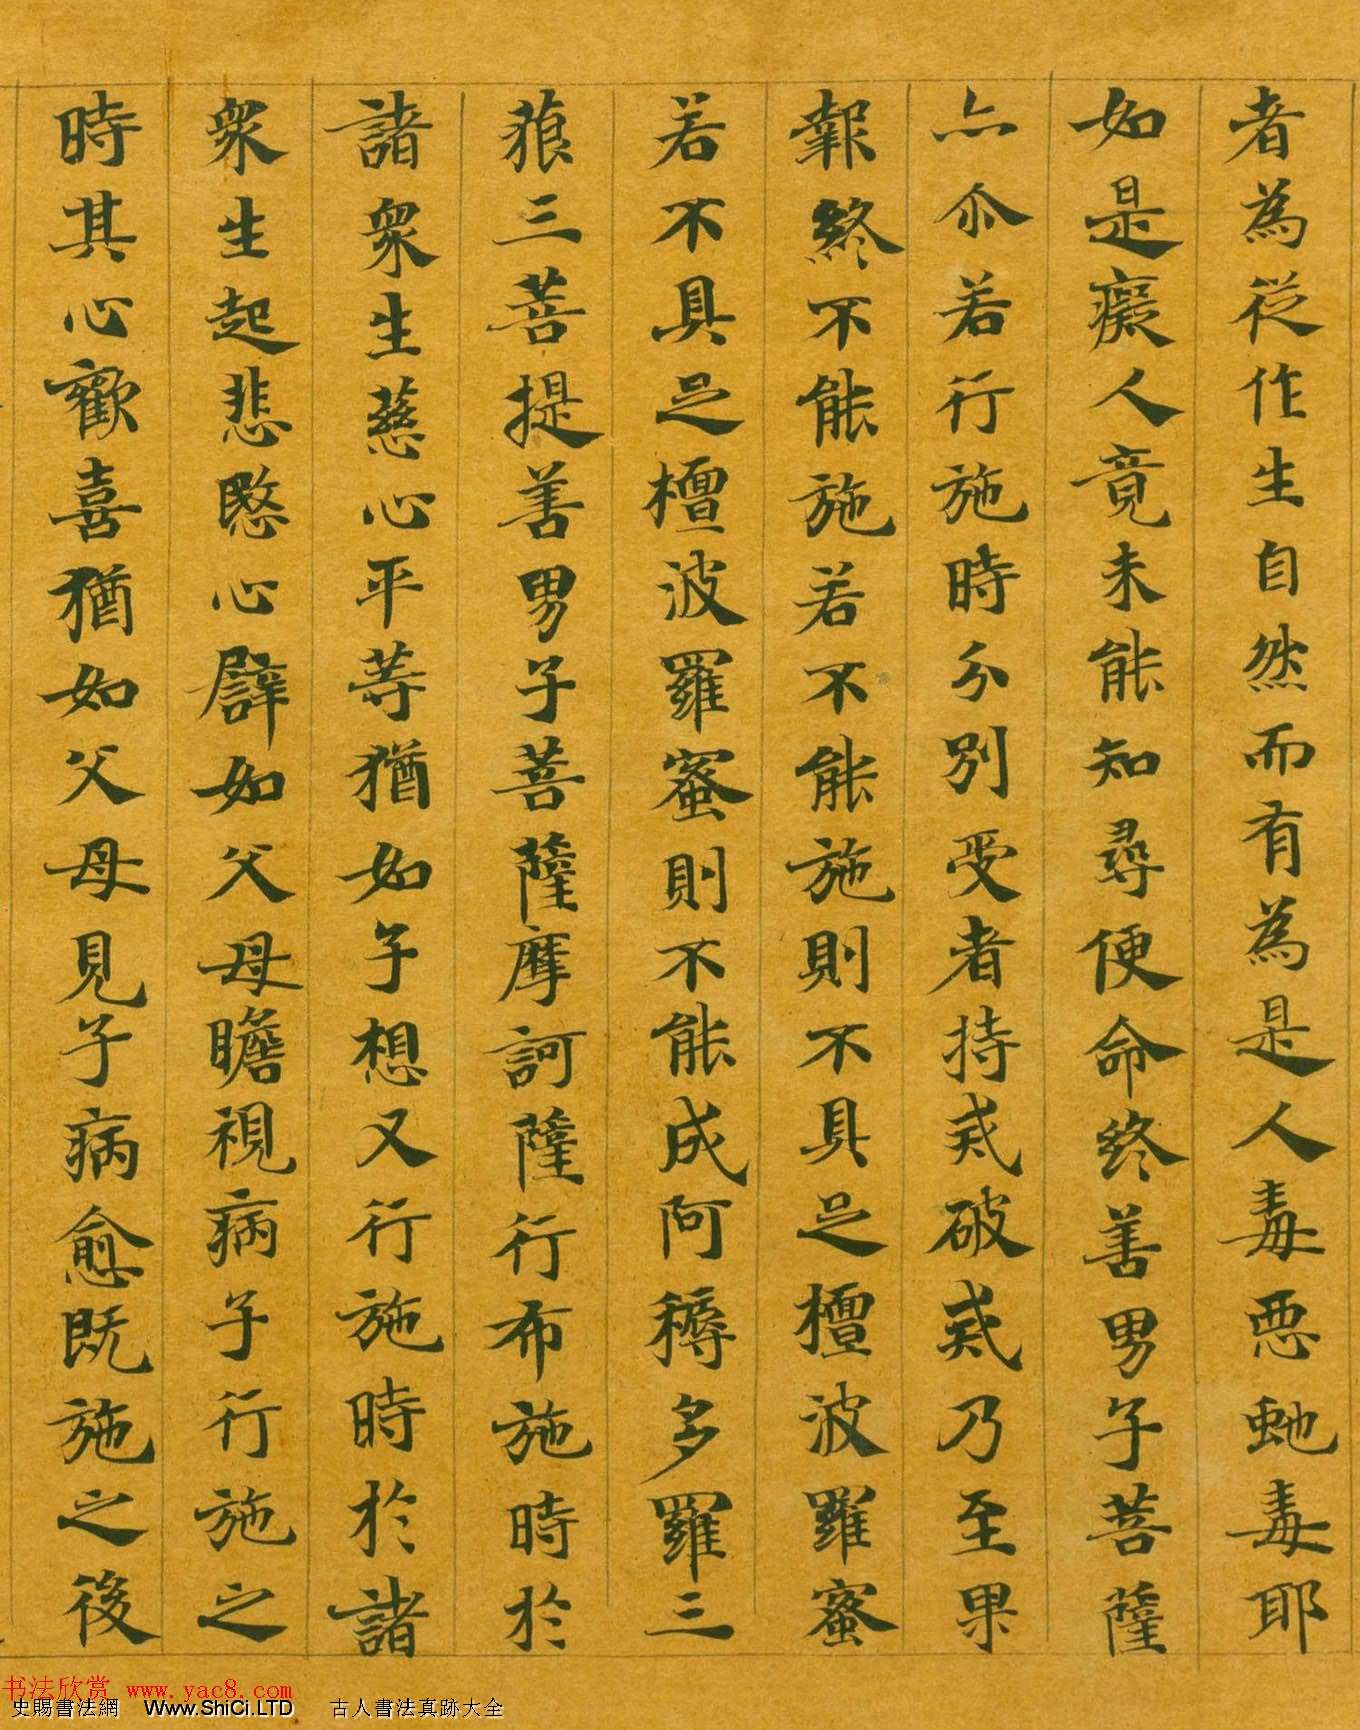 者為從作生自然而有為是人毒惡虵毒耶
如是癡人竟未能知尋便命終善男子菩薩
亦尒若行施時分別受者持戒破戒乃至果
報終不能施若不能施則不具足檀波羅蜜
若不具足檀波羅蜜則不能成阿耨多羅三
藐三菩提善男子菩薩摩訶薩行布施時於
諸衆生慈心平等猶如子想又行施時於諸
衆生起悲愍心譬如父母瞻視病子行施之
時其心歡喜猶如父母見子病愈既施之後
书法欣赏 www.yac8.com
史賜書法網 Www.ShiCi.LTD 古人書法真跡大全